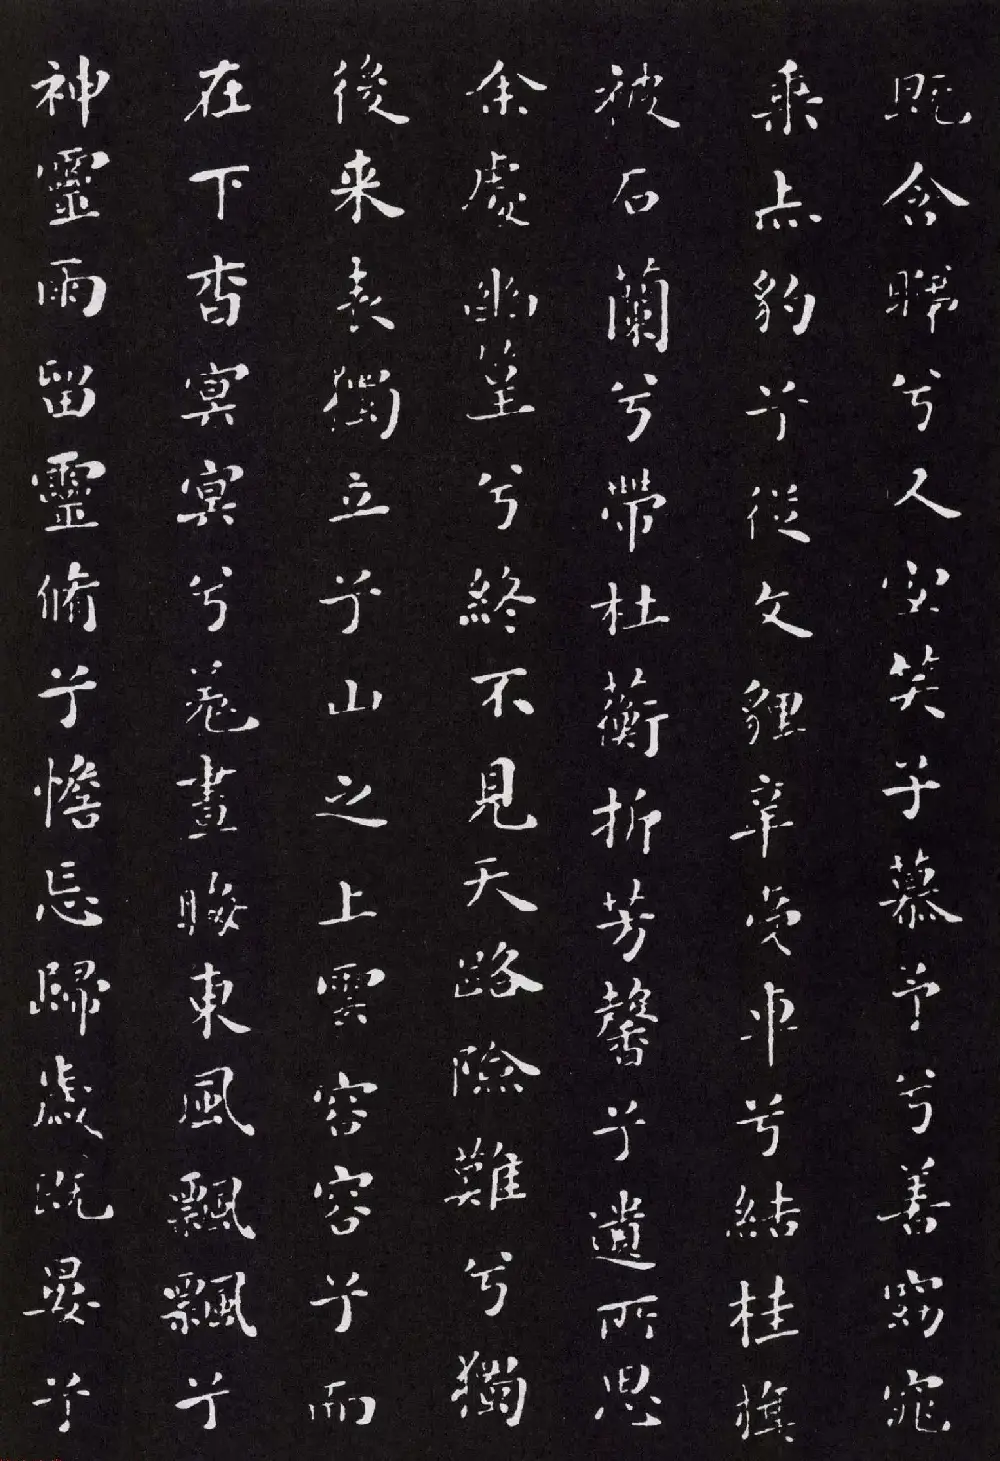 既含睇兮又宜笑子慕予兮善窈窕
乘赤豹兮從文貍辛夷車兮結桂旗
被石蘭兮帶杜蘅折芳馨兮遺所思
余處幽篁兮終不見天路險難兮獨
後来表獨立兮山之上雲容容兮而
在下杳冥冥兮羌晝晦東風飄飄兮
神靈雨留靈脩兮憺忘歸歲既晏兮